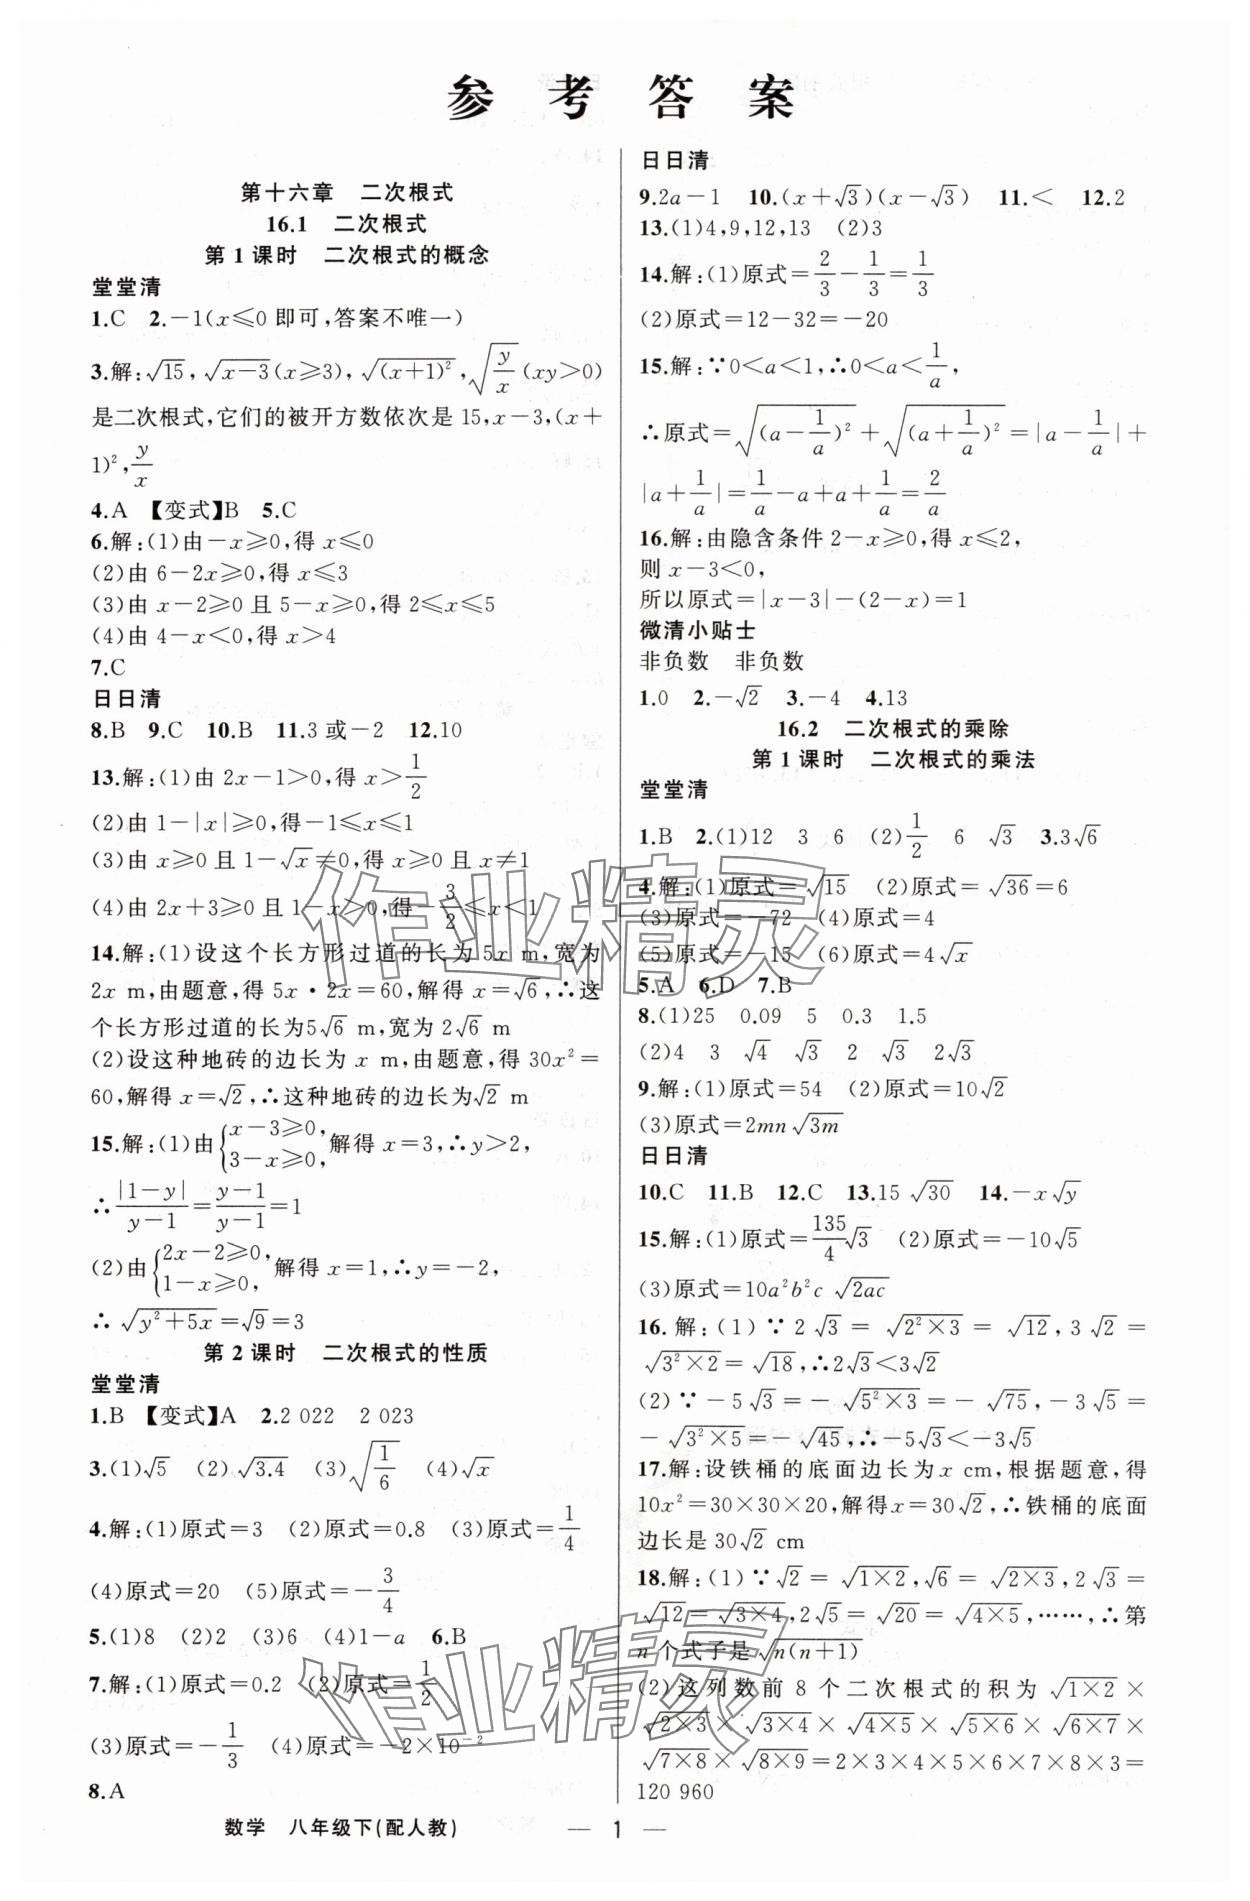 参 考 答 案
第十六章 二次根式
16.1 二次根式
第1课时 二次根式的概念
堂堂清
1.C 2.-1(x≤0 即可,答案不唯一)
3.解:√15, √(x-3)(x≥3), √((x+1)²), √(y/x)(xy>0)
是二次根式,它们的被开方数依次是 15,x-3,(x+
1)²,y/x
4.A 【变式】B 5.C
6.解:(1)由-x≥0,得 x≤0
(2)由 6-2x≥0,得 x≤3
(3)由 x-2≥0 且 5-x≥0,得 2≤x≤5
(4)由 4-x<0,得 x>4
7.C
日日清
8.B 9.C 10.B 11.3 或-2 12.10
13.解:(1)由 2x-1>0,得 x>1/2
(2)由 1-|x|≥0,得-1≤x≤1
(3)由 x≥0 且 1-√x≠0,得 x≥0 且 x≠1
(4)由 2x+3≥0 且 1-x>0,得-3/2≤x<1
14.解:(1)设这个长方形过道的长为 5x m,宽为
2x m,由题意,得 5x·2x=60,解得 x=√6,∴这
个长方形过道的长为5√6 m,宽为 2√6 m
(2)设这种地砖的边长为 x m,由题意,得 30x²=
60,解得 x=√2,∴这种地砖的边长为√2 m
15.解:(1)由{x-3≥0, 3-x≥0,解得 x=3,∴y>2,
∴|1-y|/(y-1)=(y-1)/(y-1)=1
(2)由{2x-2≥0, 1-x≥0,解得 x=1,∴y=-2,
∴ √(y²+5x)=√9=3
第2课时 二次根式的性质
堂堂清
1.B 【变式】A 2.2 022 2 023
3.(1)√5 (2)√3.4 (3)√(1/6) (4)√x
4.解:(1)原式=3 (2)原式=0.8 (3)原式=1/4
(4)原式=20 (5)原式=-3/4
5.(1)8 (2)2 (3)6 (4)1-a 6.B
7.解:(1)原式=0.2 (2)原式=1/2
(3)原式=-1/3 (4)原式=-2×10⁻²
8.A
日日清
9.2a-1 10.(x+√3)(x-√3) 11.< 12.2
13.(1)4,9,12,13 (2)3
14.解:(1)原式=2/3-1/3=1/3
(2)原式=12-32=-20
15.解:∵0<a<1,∴0<a<1/a,
∴原式=√((a-1/a)²)+√((a+1/a)²)=|a-1/a|+
|a+1/a|=1/a-a+a+1/a=2/a
16.解:由隐含条件 2-x≥0,得 x≤2,
则 x-3<0,
所以原式=|x-3|-(2-x)=1
微清小贴士
非负数 非负数
1.0 2.-√2 3.-4 4.13
16.2 二次根式的乘除
第1课时 二次根式的乘法
堂堂清
1.B 2.(1)12 3 6 (2)1/2 6 √3 3.3√6
4.解:(1)原式=√15 (2)原式=√36=6
(3)原式=-72 (4)原式=4
(5)原式=-15 (6)原式=4√x
5.A 6.D 7.B
8.(1)25 0.09 5 0.3 1.5
(2)4 3 √4 √3 2 √3 2√3
9.解:(1)原式=54 (2)原式=10√2
(3)原式=2mn√3m
日日清
10.C 11.B 12.C 13.15 √30 14.-x√y
15.解:(1)原式=135/4√3 (2)原式=-10√5
(3)原式=10a²b²c √2ac
16.解:(1)∵2√3=√(2²×3)=√12,3√2=
√(3²×2)=√18,∴2√3<3√2
(2)∵-5√3=-√(5²×3)=-√75,-3√5=
-√(3²×5)=-√45,∴-5√3<-3√5
17.解:设铁桶的底面边长为x cm,根据题意,得
10x²=30×30×20,解得x=30√2,∴铁桶的底面
边长是 30√2 cm
18.解:(1)∵√2=√(1×2),√6=√(2×3),2√3=
√12=√(3×4),2√5=√20=√(4×5),……,∴第
n 个式子是√(n(n+1))
(2)这列数前 8 个二次根式的积为 √(1×2)×
√(2×3)×√(3×4)×√(4×5)×√(5×6)×√(6×7)×
√(7×8)×√(8×9)=2×3×4×5×6×7×8×3=
120 960
数学 八年级下(配人教) — 1 —
作业精灵
作业精灵